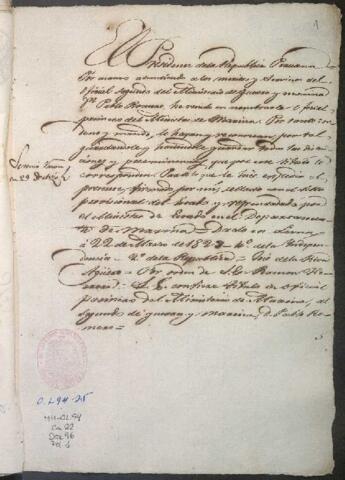 1
El Presidente de la Republica Peruana
Por cuanto atendiendo a los meritos y servicios del
oficial segundo del Ministerio de guerra y marina
Dn Pablo Romero, he venido en nombrarle oficial
primero del Ministerio de Marina. Por tanto or-
deno y mando, le hayan y reconozcan por tal
guardandole y haciendole guardar todas las distin-
ciones y preeminencias que por este titulo le
corresponden. Para lo que le hice expedir el
presente, firmado por mi, sellado con el sello
provisional del Estado y refrendado por
el Ministro de Estado en el Departamento
de Marina = Dado en Lima
á 22 de Marzo de 1823. 4º de la Indepen-
dencia. 2º de la Republica = José de la Riva
Aguero = Por orden de S. E. Ramon Her-
rera = S. E. confiere titulo de oficial
primero del Ministerio de Marina, al
segundo de guerra y marina, D. Pablo Ro-
mero =
O.L. 94-25
MH-OL94
Ca. 22
Doc 96
Fol. 1